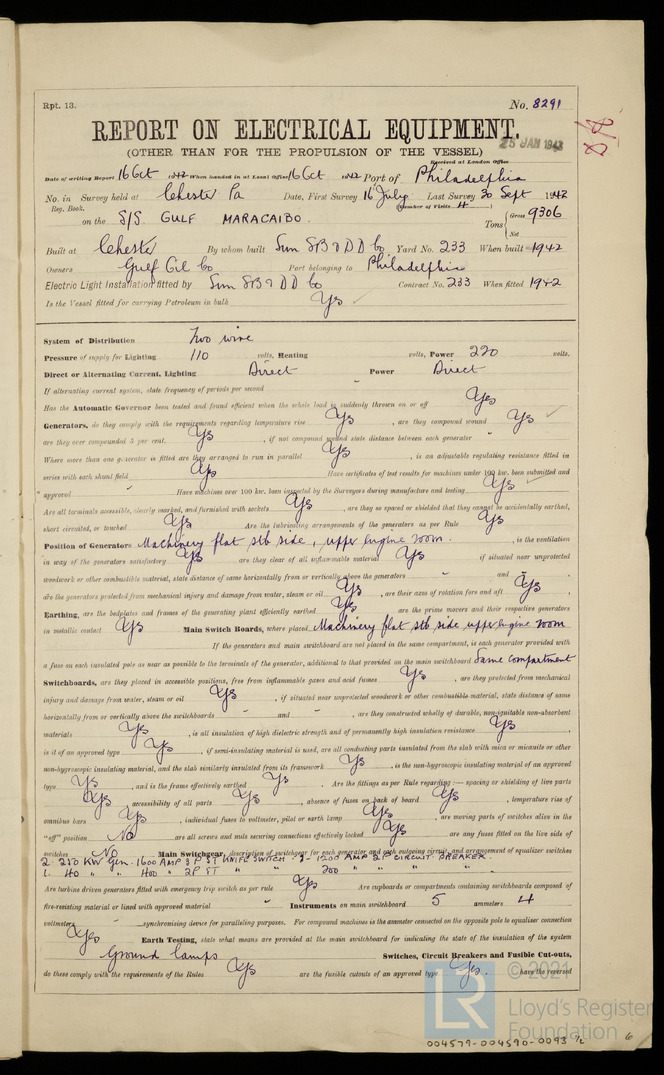 Rpt. 13.
No. 8291
REPORT ON ELECTRICAL EQUIPMENT.
25 JAN 1943
(OTHER THAN FOR THE PROPULSION OF THE VESSEL)
Received at London Office
Date of writing Report 16 Oct 1942 When handed in at Local Office 16 Oct 1942 Port of Philadelphia
No. in Survey held at Chester Pa Date, First Survey 16 July Last Survey 30 Sept 1942
Reg. Book. (Number of Visits 4)
on the S/S GULF MARACAIBO. Tons { Gross 9306
Net
Built at Chester By whom built Sun SB & DD Co Yard No. 233 When built 1942
Owners Gulf Oil Co Port belonging to Philadelphia
Electric Light Installation fitted by Sun SB & DD Co Contract No. 233 When fitted 1942
Is the Vessel fitted for carrying Petroleum in bulk Yes ✓
System of Distribution Two wire
Pressure of supply for Lighting 110 volts, Heating volts, Power 220 volts.
Direct or Alternating Current, Lighting Direct Power Direct
If alternating current system, state frequency of periods per second
Has the Automatic Governor been tested and found efficient when the whole load is suddenly thrown on or off Yes
Generators, do they comply with the requirements regarding temperature rise Yes, are they compound wound Yes ✓
are they over compounded 5 per cent. Yes, if not compound wound state distance between each generator -
Where more than one generator is fitted are they arranged to run in parallel Yes, is an adjustable regulating resistance fitted in
series with each shunt field Yes Have certificates of test results for machines under 100 kw. been submitted and
approved - Have machines over 100 kw. been inspected by the Surveyors during manufacture and testing Yes ✓
Are all terminals accessible, clearly marked, and furnished with sockets Yes, are they so spaced or shielded that they cannot be accidentally earthed,
short circuited, or touched Yes Are the lubricating arrangements of the generators as per Rule Yes
Position of Generators Machinery flat stb side, upper Engine room. , is the ventilation
in way of the generators satisfactory Yes are they clear of all inflammable material Yes if situated near unprotected
woodwork or other combustible material, state distance of same horizontally from or vertically above the generators - and -,
are the generators protected from mechanical injury and damage from water, steam or oil Yes, are their axes of rotation fore and aft Yes,
Earthing, are the bedplates and frames of the generating plant efficiently earthed Yes are the prime movers and their respective generators
in metallic contact Yes Main Switch Boards, where placed Machinery flat stb side upper Engine room
If the generators and main switchboard are not placed in the same compartment, is each generator provided with
a fuse on each insulated pole as near as possible to the terminals of the generator, additional to that provided on the main switchboard Same compartment
Switchboards, are they placed in accessible positions, free from inflammable gases and acid fumes Yes, are they protected from mechanical
injury and damage from water, steam or oil Yes, if situated near unprotected woodwork or other combustible material, state distance of same
horizontally from or vertically above the switchboards - and -, are they constructed wholly of durable, non-ignitable non-absorbent
materials Yes, is all insulation of high dielectric strength and of permanently high insulation resistance Yes,
is it of an approved type Yes, if semi-insulating material is used, are all conducting parts insulated from the slab with mica or micanite or other
non-hygroscopic insulating material, and the slab similarly insulated from its framework Yes, is the non-hygroscopic insulating material of an approved
type Yes, and is the frame effectively earthed Yes. Are the fittings as per Rule regarding :— spacing or shielding of live parts
Yes, accessibility of all parts Yes, absence of fuses on back of board Yes, temperature rise of
omnibus bars Yes, individual fuses to voltmeter, pilot or earth lamp Yes, are moving parts of switches alive in the
"off" position No are all screws and nuts securing connections effectively locked Yes are any fuses fitted on the live side of
switches No Main Switchgear, description of switchgear for each generator and each outgoing circuit, and arrangement of equalizer switches
2. 250 KW Gen. 1600 AMP 3 P ST KNIFE SWITCH & 2 - 1200 AMP 2 P CIRCUIT BREAKER.
1. 40 " " 400 " 2P ST " " 200 " " " "
Are turbine driven generators fitted with emergency trip switch as per rule Yes Are cupboards or compartments containing switchboards composed of
fire-resisting material or lined with approved material - Instruments on main switchboard 5 ammeters 4
voltmeters - synchronising device for paralleling purposes. For compound machines is the ammeter connected on the opposite pole to equaliser connection
Yes Earth Testing, state what means are provided at the main switchboard for indicating the state of the insulation of the system
Ground lamps Switches, Circuit Breakers and Fusible Cut-outs,
do these comply with the requirements of the Rules Yes are the fusible cutouts of an approved type Yes. have the reversed
LR
© 2021
Lloyd's Register
Foundation
004579-004590-0093 1/2
6